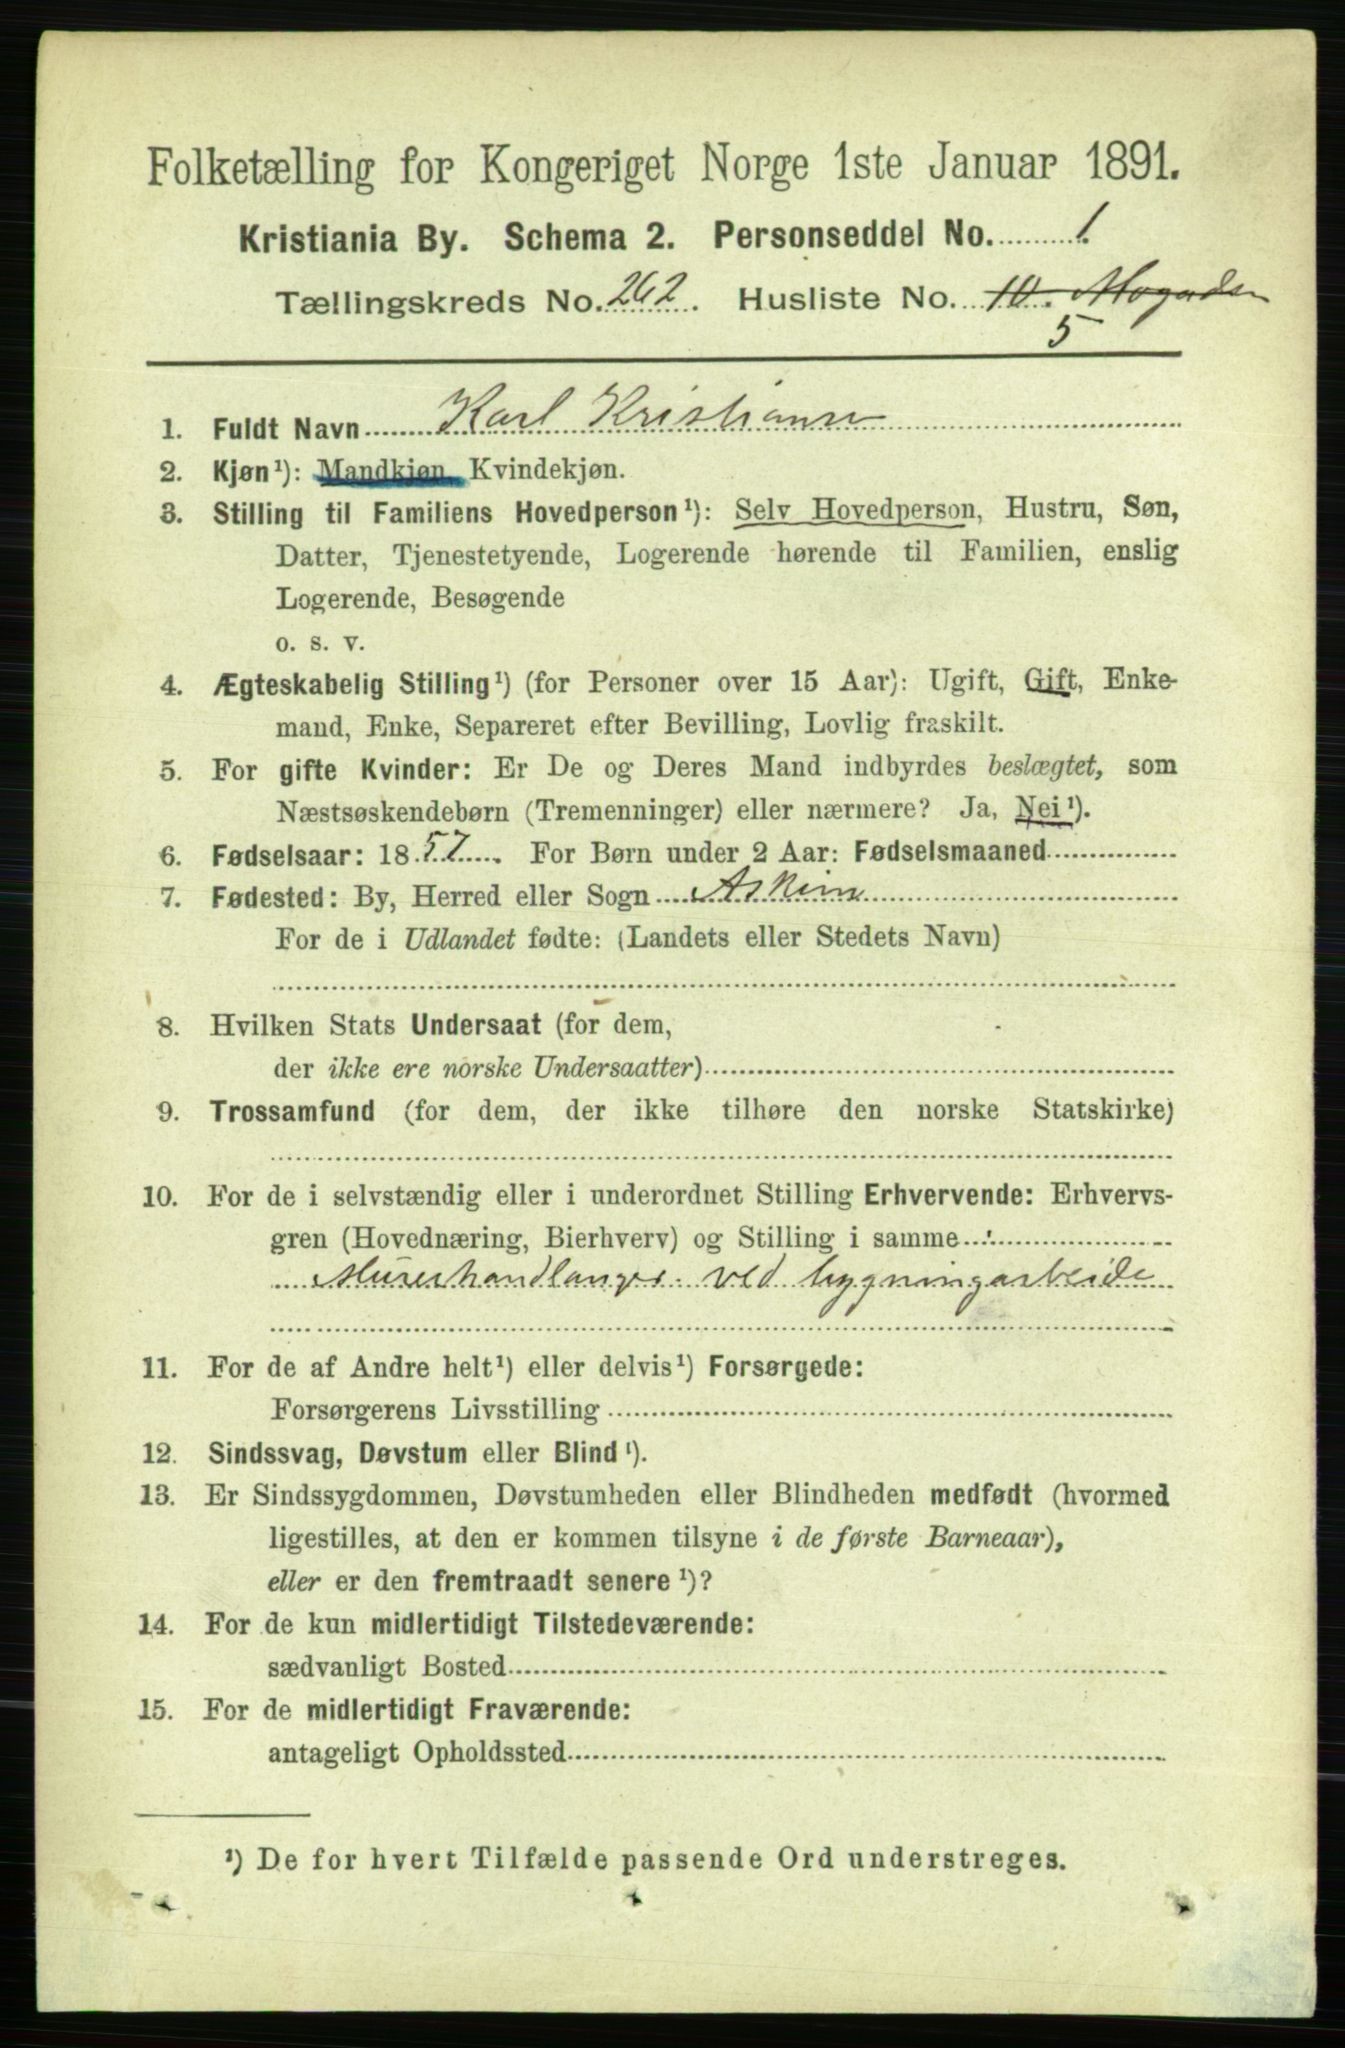 Folketælling for Kongeriget Norge 1ste Januar 1891.
Kristiania By. Schema 2. Personseddel No. 1.
Tællingskreds No. 262. Husliste No. 10.
5
1. Fuldt Navn Karl Kristianse
2. Kjøn¹): Mandkjøn, Kvindekjøn.
3. Stilling til Familiens Hovedperson¹): Selv Hovedperson, Hustru, Søn,
Datter, Tjenestetyende, Logerende hørende til Familien, enslig
Logerende, Besøgende
o. s. v.
4. Ægteskabelig Stilling¹) (for Personer over 15 Aar): Ugift, Gift, Enke-
mand, Enke, Separeret efter Bevilling, Lovlig fraskilt.
5. For gifte Kvinder: Er De og Deres Mand indbyrdes beslægtet, som
Næstsøskendebørn (Tremenninger) eller nærmere? Ja, Nei¹).
6. Fødselsaar: 1857. For Børn under 2 Aar: Fødselsmaaned
7. Fødested: By, Herred eller Sogn Askim
For de i Udlandet fødte: (Landets eller Stedets Navn)
8. Hvilken Stats Undersaat (for dem,
der ikke ere norske Undersaatter)
9. Trossamfund (for dem, der ikke tilhøre den norske Statskirke)
10. For de i selvstændig eller i underordnet Stilling Erhvervende: Erhvervs-
gren (Hovednæring, Bierhverv) og Stilling i samme
Murerhandlanger ved bygningarbeide
11. For de af Andre helt¹) eller delvis¹) Forsørgede:
Forsørgerens Livsstilling
12. Sindssvag, Døvstum eller Blind¹).
13. Er Sindssygdommen, Døvstumheden eller Blindheden medfødt (hvormed
ligestilles, at den er kommen tilsyne i de første Barneaar),
eller er den fremtraadt senere¹)?
14. For de kun midlertidigt Tilstedeværende:
sædvanligt Bosted
15. For de midlertidigt Fraværende:
antageligt Opholdssted
¹) De for hvert Tilfælde passende Ord understreges.